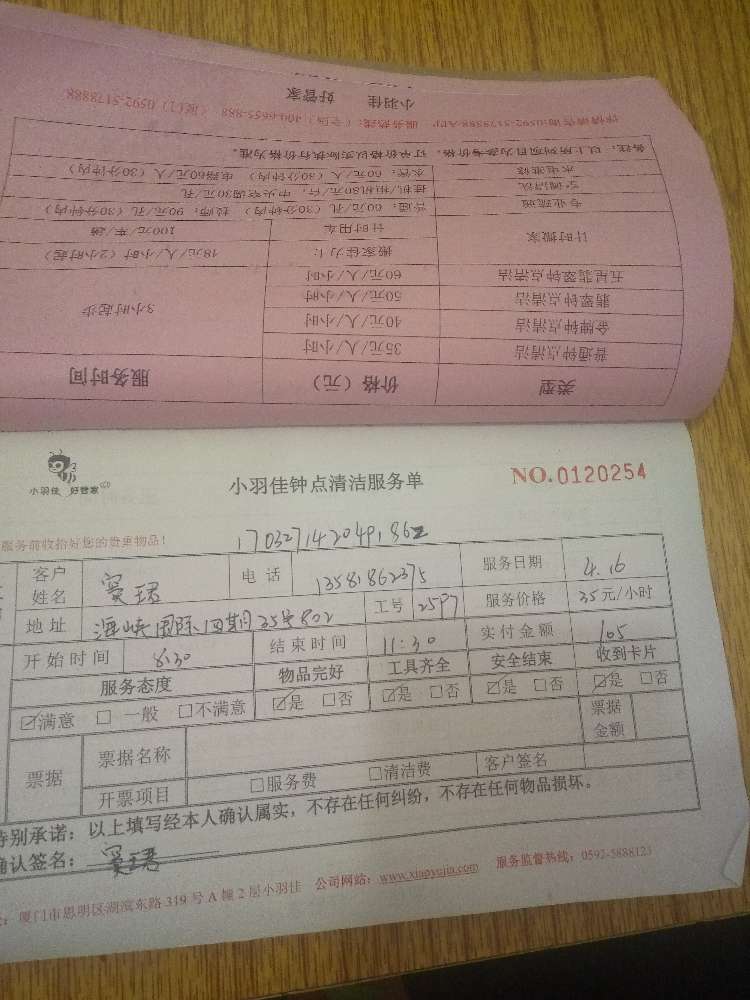 小羽佳 好管家
详情请咨询0592-5178888/APP 服务热线:(全国)400-6655-888 (厦门) 0592-5178888
类型 价格(元) 服务时间
普通钟点清洁 35元/人/小时 3小时起步
金牌钟点清洁 40元/人/小时
翡翠钟点清洁 50元/人/小时
五星翡翠钟点清洁 60元/人/小时
计时搬家 搬家劳力工 48元/人/小时(2小时起)
计时用车 100元/车/趟
专业疏通 普通:60元/孔(30分钟内) 技师:90元/孔(30分钟内)
空调清洗 挂机/柜机80元/台,中央空调30元/孔
水电维修 水管:60元/人(30分钟内) 电路60元/人(30分钟内)
备注:以上所列项目为参考价格,订单价格以实际执行价格为准。
小羽佳 好管家
小羽佳钟点清洁服务单
NO.0120254
服务前收拾好您的贵重物品!
客户姓名 窦珺 电话 13581862375 服务日期 4.16
地址 海峡国际四期35号802 工号 2597 服务价格 35元/小时
开始时间 8:30 结束时间 11:30 实付金额 105
服务态度 物品完好 工具齐全 安全结束 收到卡片
☑满意 □一般 □不满意 ☑是 □否 ☑是 □否 ☑是 □否 ☑是 □否
票据 票据名称 票据金额
开票项目 □服务费 □清洁费 客户签名
特别承诺:以上填写经本人确认属实,不存在任何纠纷,不存在任何物品损坏。
确认签名:窦珺
厦门市思明区湖滨东路319号A幢2层小羽佳 公司网站:www.xiaoyujia.com 服务监督热线:0592-5888123